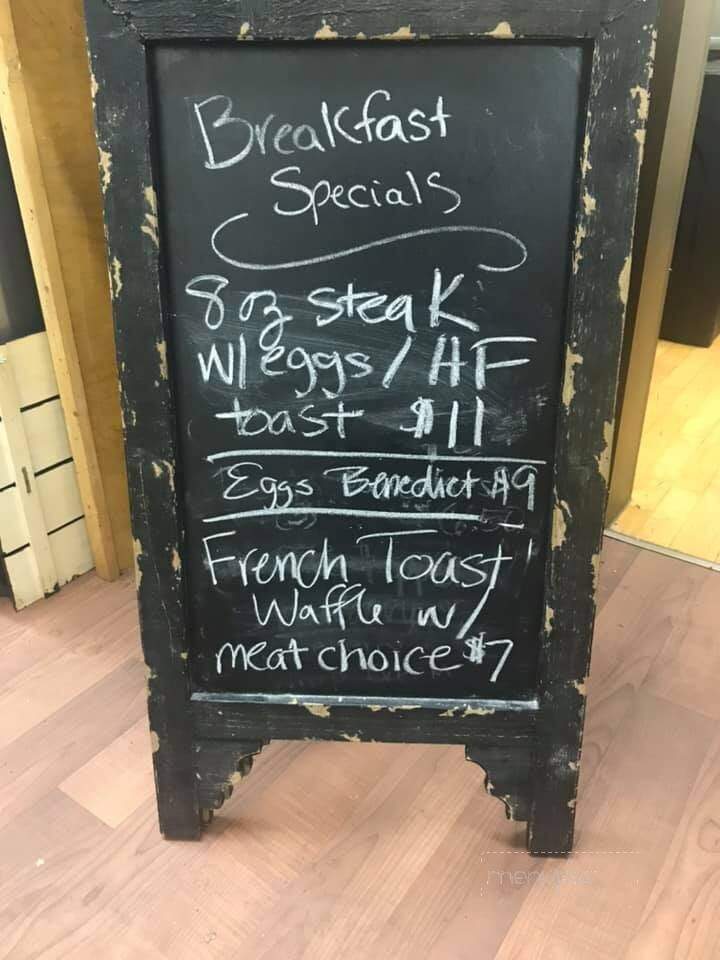 Breakfast
Specials
8 oz steak
w/ eggs / HF
toast $11
Eggs Benedict $9
French Toast
Waffle w/
meat choice $7